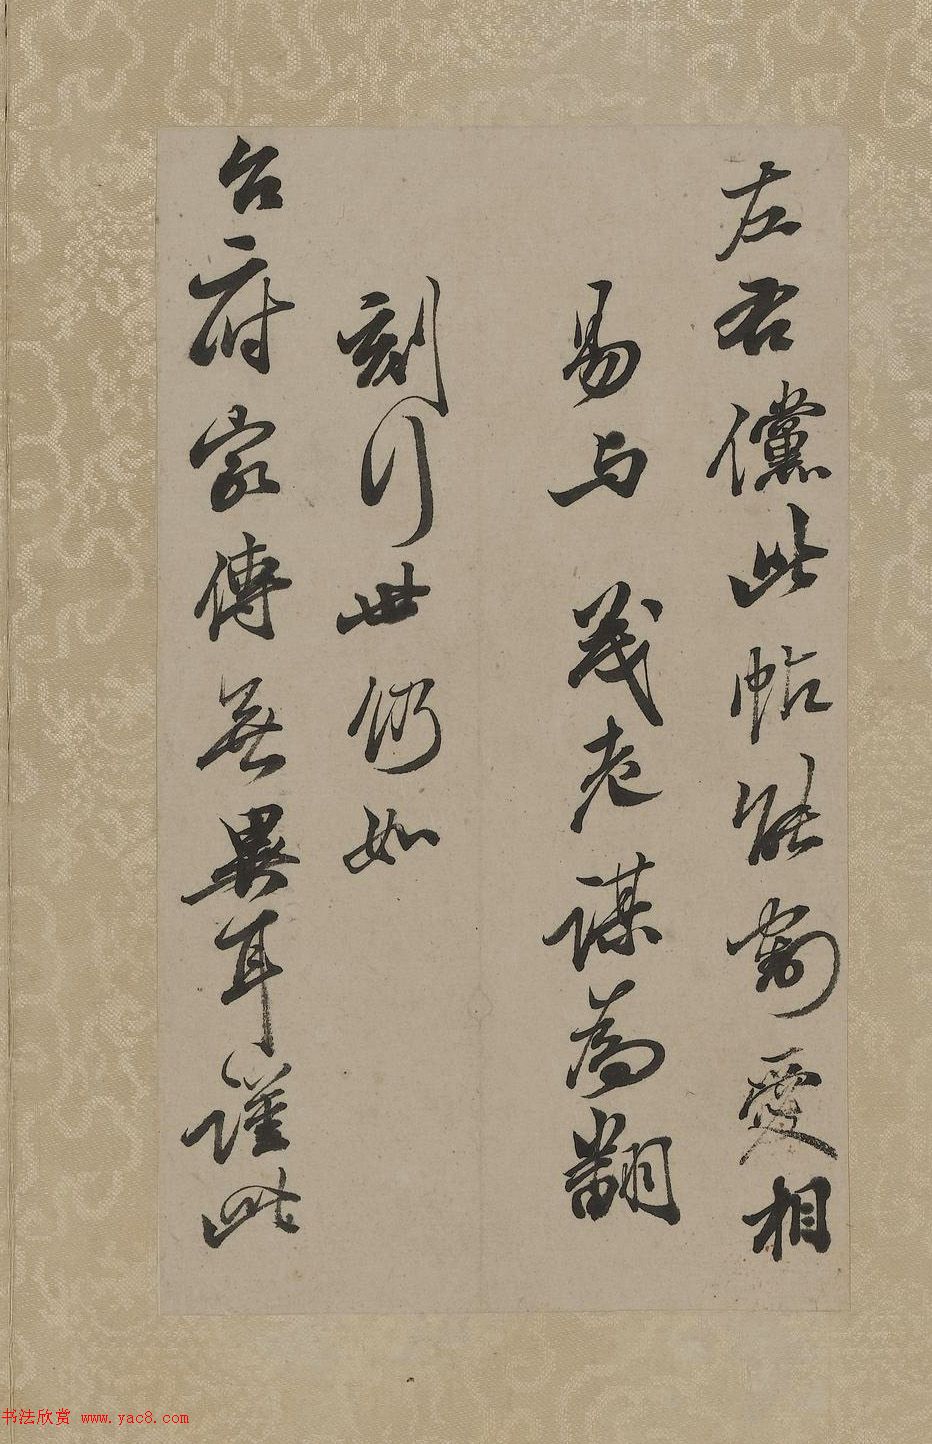 左右儻此帖能割愛相
易与茂老謀為翻
刻行世仍如
台府家傳無異耳謹此
书法欣赏 www.yac8.com